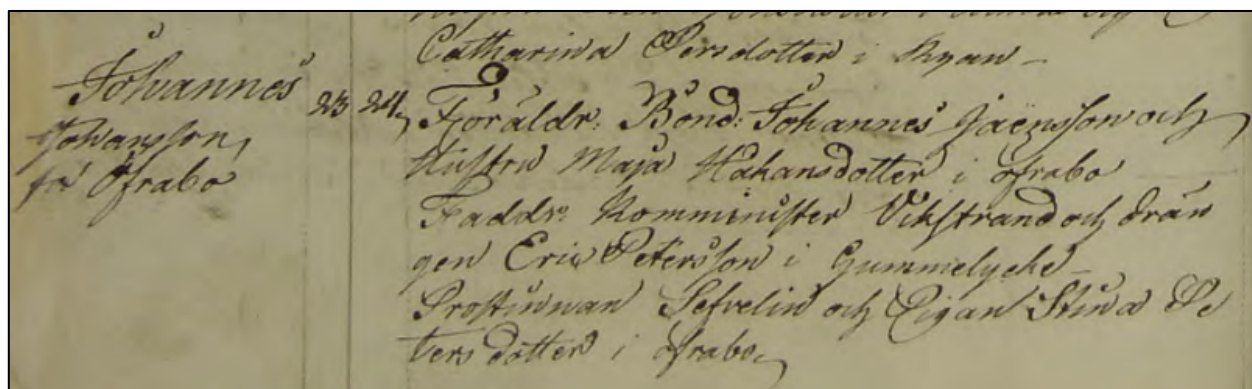 Catharina Persdotter i Ryan –
Johannes
Johansson
frå Öfrabo
23 24
Föräldr: Bond: Johannes JaenSson och
Hustru Maja Håkansdotter i Öfrabo
Faddr: Komminister Vikstrand och drän
gen Eric Petersson i Gummelycke –
Prostinnan Sefvelin och Pigan Stina Pe
ters dotter i Öfrabo